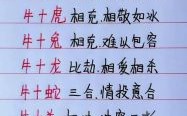 牛十虎 相克.相敬如冰
牛十兔 相克.难以包容
牛十龙 比劫.相爱相杀
牛十蛇 三合.情投意合